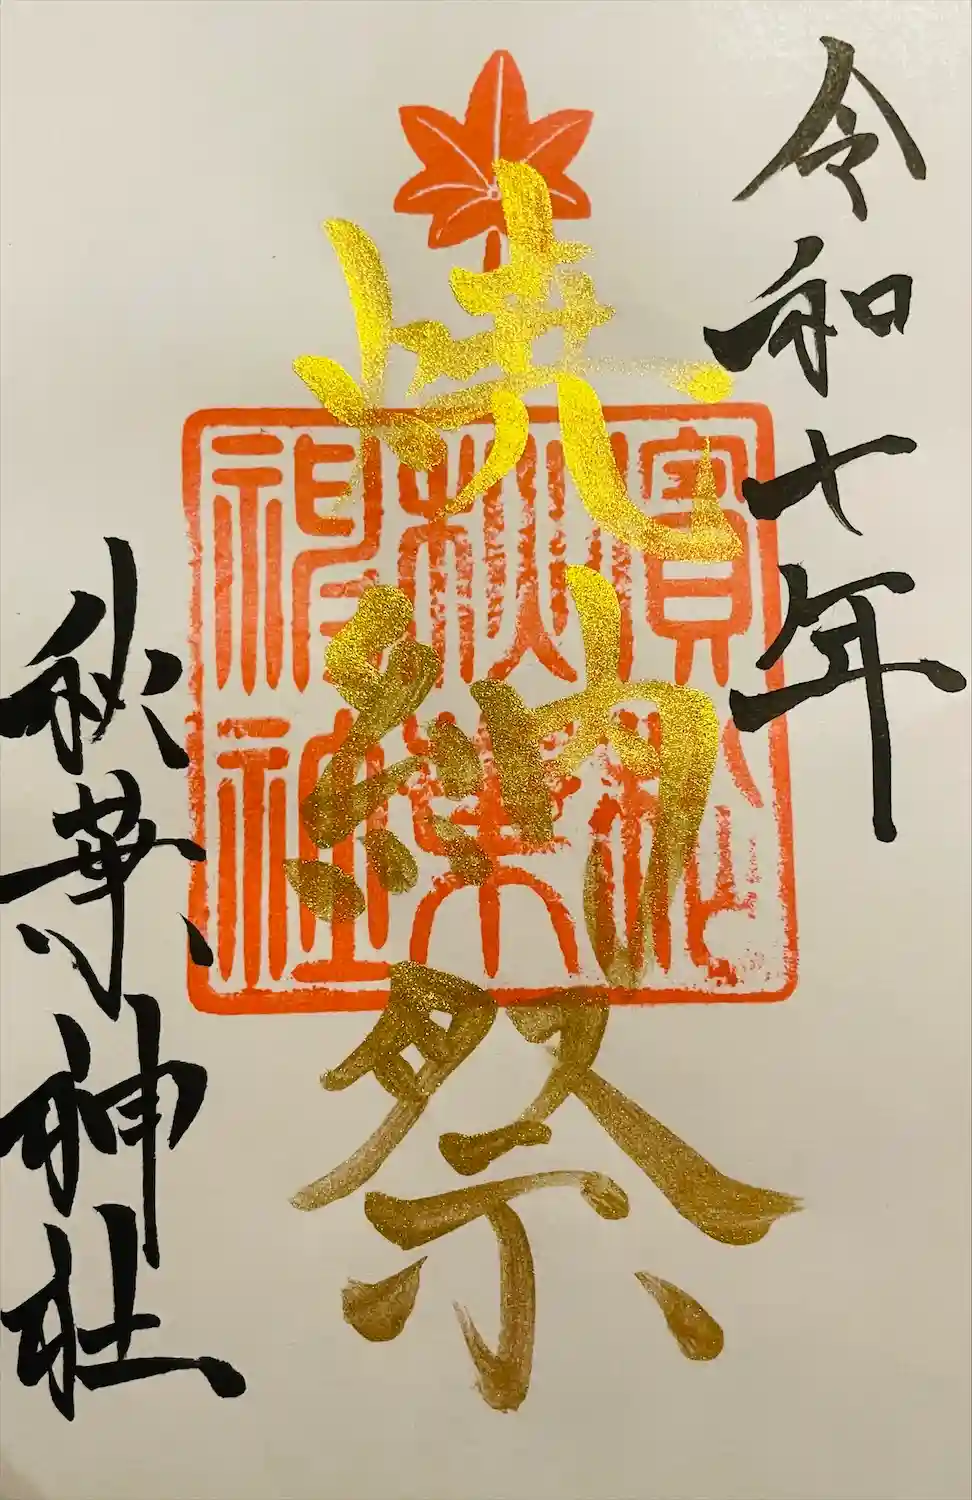 令和七年
焼納祭
秋葉
神社
秋葉神社